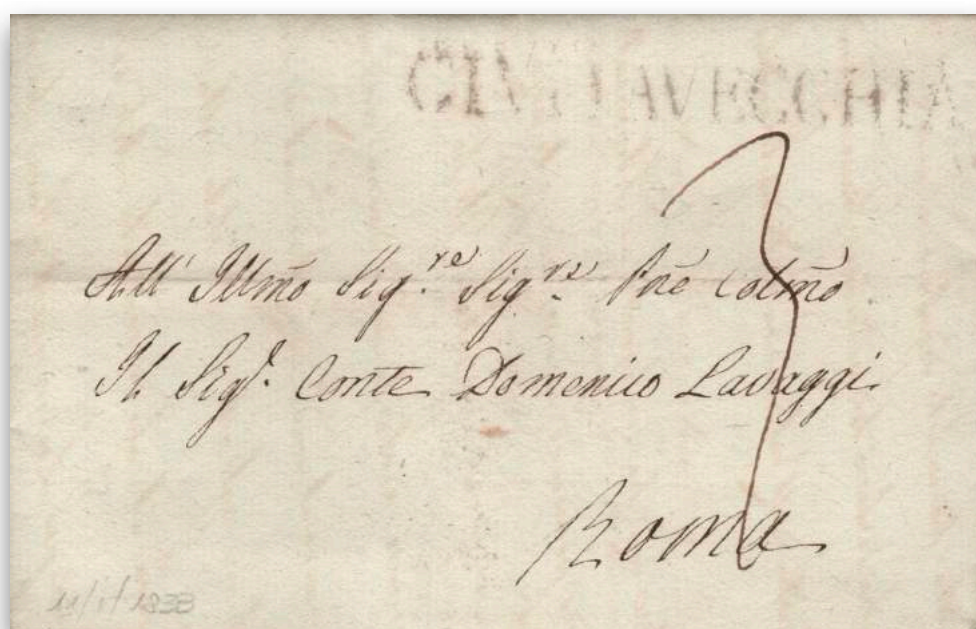 CIVITAVECCHIA
3
All' Illmo Sig.re Sig.re Pñe Colmo
Il Sigr. Conte Domenico Lavaggi
Roma
1838